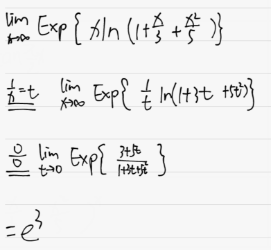 lim x→∞ Exp{ x ln (1+x/3+x²/5) }
1/x=t lim x→∞ Exp{ 1/t ln(1+3t+5t²) }
0/0 lim t→0 Exp{ 3+5t/1+3t+5t }
= e³